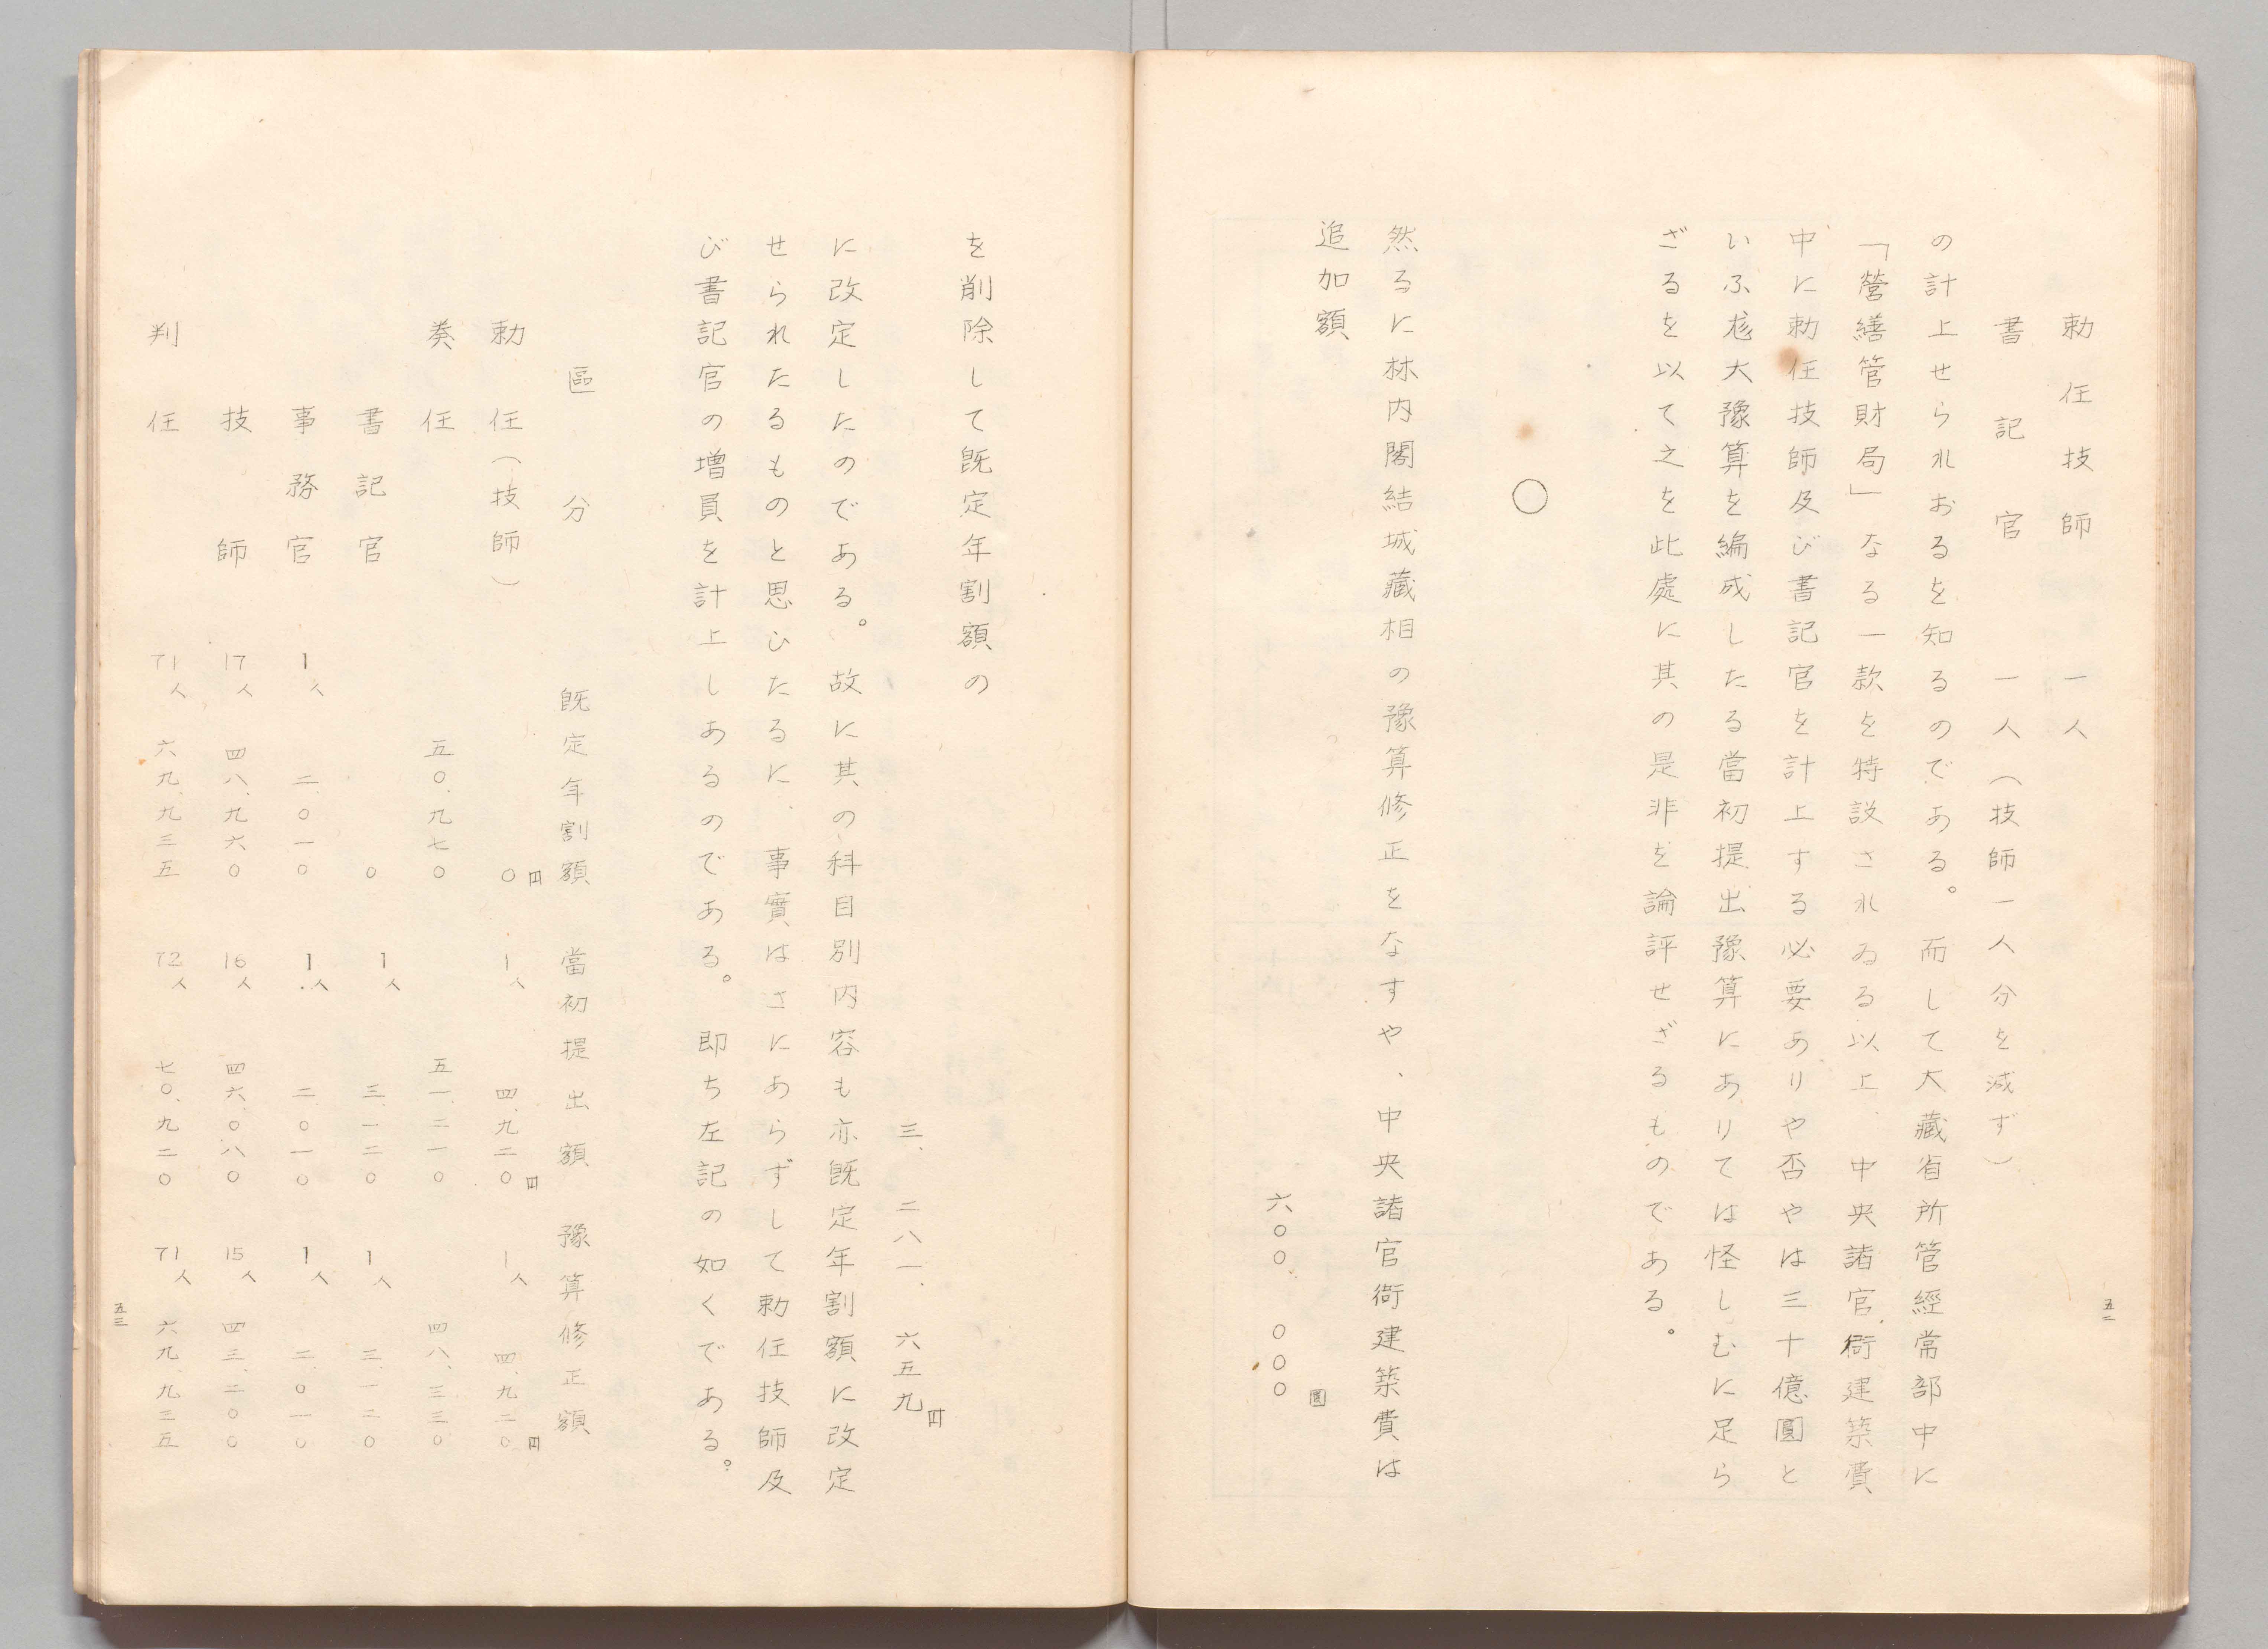 勅任技師　一人
書記官　一人（技師一人分を減ず）
の計上せられおるを知るのである。而して大藏省所管經常部中に
「營繕管財局」なる一款を特設されゐる以上、中央諸官衙建築費
中に勅任技師及び書記官を計上する必要ありや否やは三十億圓と
いふ尨大豫算を編成したる當初提出豫算にありては怪しむに足ら
ざるを以て之を此處に其の是非を論評せざるものである。
○
然るに林内閣結城藏相の豫算修正をなすや、中央諸官衙建築費は
追加額
六〇〇、〇〇〇圓
五二
を削除して既定年割額の
三、二八一、六五九円
に改定したのである。故に其の科目別内容も亦既定年割額に改定
せられたるものと思ひたるに、事實はさにあらずして勅任技師及
び書記官の増員を計上しあるのである。即ち左記の如くである。
區分　既定年割額　當初提出額　豫算修正額
勅任（技師）　〇円　1人　四、九二〇円　1人　四、九二〇円
奏任　五〇、九七〇　五一、二一〇　四八、三三〇
書記官　〇　1人　三、一二〇　1人　三、一二〇
事務官　1人　二、〇一〇　1人　二、〇一〇　1人　二、〇一〇
技師　17人　四八、九六〇　16人　四六、〇八〇　15人　四三、二〇〇
判任　71人　六九、九三五　72人　七〇、九二〇　71人　六九、九三五
五三